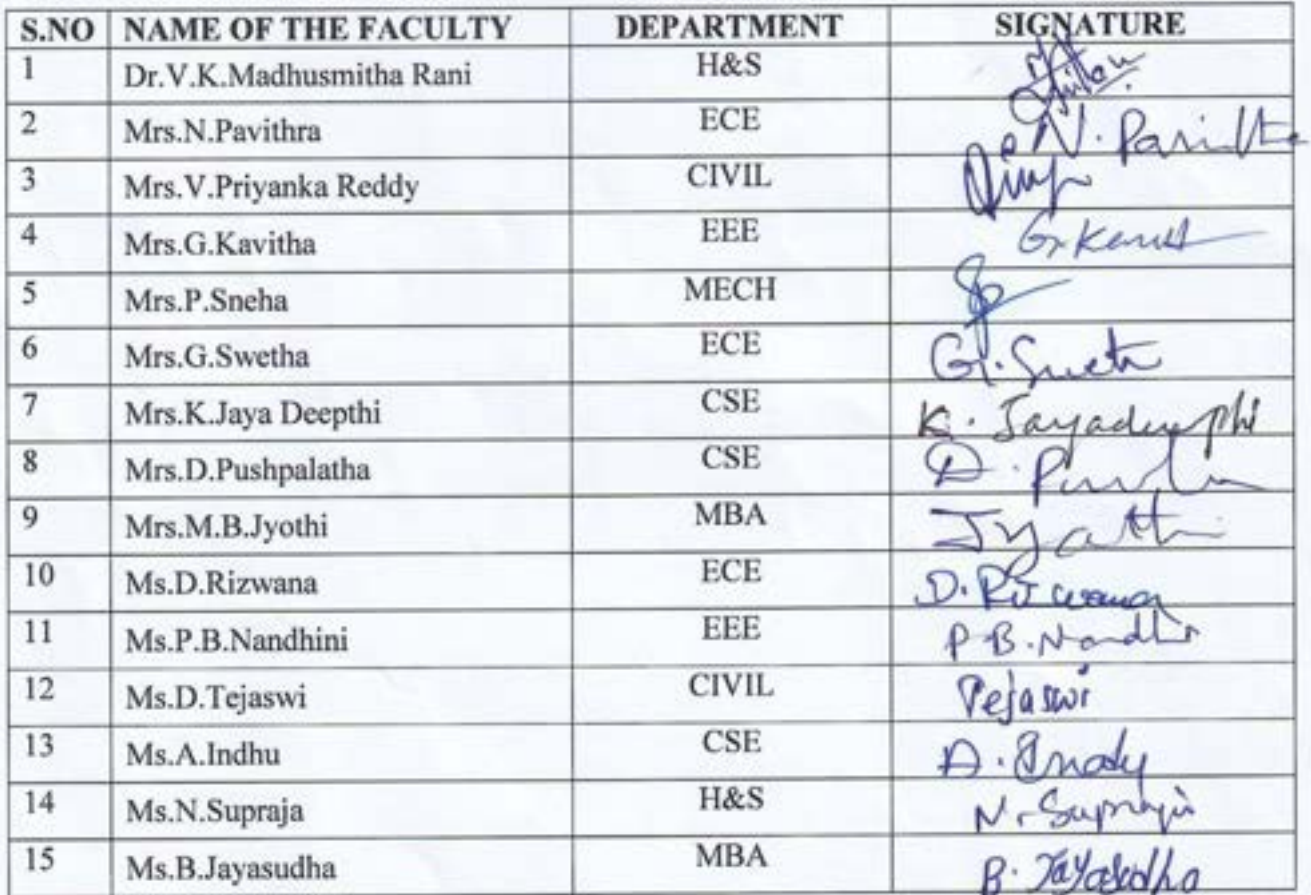 S.NO NAME OF THE FACULTY DEPARTMENT SIGNATURE
1 Dr.V.K.Madhusmitha Rani H&S
2 Mrs.N.Pavithra ECE N.
3 Mrs.V.Priyanka Reddy CIVIL
4 Mrs.G.Kavitha EEE G.
5 Mrs.P.Sneha MECH
6 Mrs.G.Swetha ECE G.
7 Mrs.K.Jaya Deepthi CSE K. Jayadeepthi
8 Mrs.D.Pushpalatha CSE D.
9 Mrs.M.B.Jyothi MBA Jyothi
10 Ms.D.Rizwana ECE D. Rizwana
11 Ms.P.B.Nandhini EEE P.B.
12 Ms.D.Tejaswi CIVIL Tejaswi
13 Ms.A.Indhu CSE A.
14 Ms.N.Supraja H&S N. Supraja
15 Ms.B.Jayasudha MBA B. Jayasudha